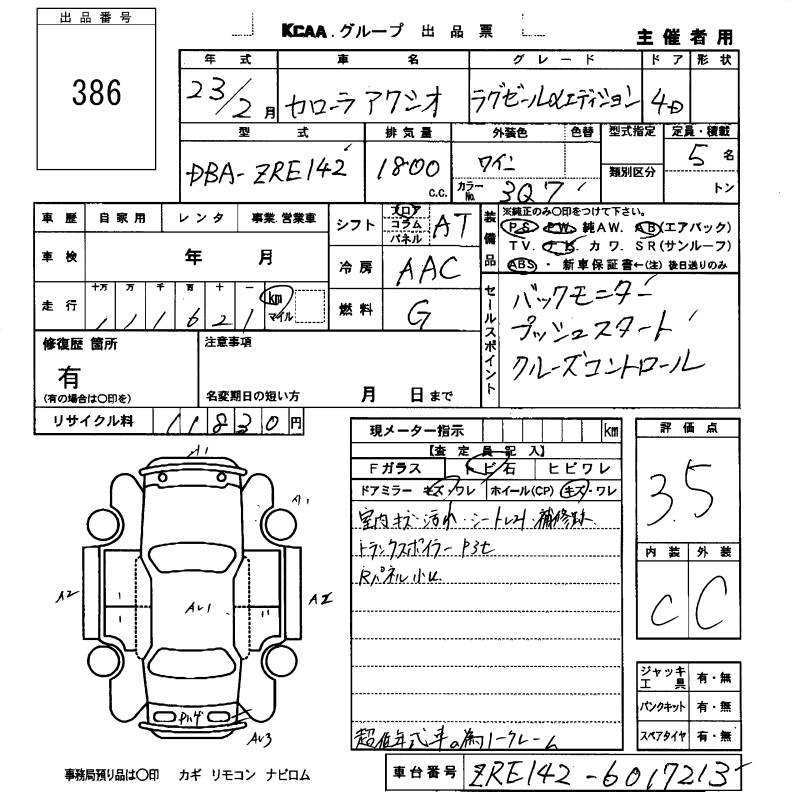 出品番号
386
KCAA.グループ 出品票
主催者用
年式 車名 グレード ドア 形状
23/2月 カローラアクシオ ラグゼールαエディション 4D
型式 排気量 外装色 色替 型式指定 定員・積載
DBA-ZRE142 1800 c.c. ワイン 類別区分 5名
カラーNo. 3Q7 トン
車歴 自家用 レンタ 事業.営業車
車検 年 月
走行 十万 万 千 百 十 一 km マイル
111621
シフト フロア コラム パネル AT
冷房 AAC
燃料 G
装備品
※純正のみ〇印をつけて下さい。
PS PW 純AW. AB(エアバック)
TV. ナビ. カワ. SR(サンルーフ)
ABS・新車保証書←(注)後日送りのみ
セールスポイント
バックモニター
プッシュスタート
クルーズコントロール
修復歴 箇所
有
(有の場合は〇印を)
注意事項
名変期日の短い方 月 日まで
リサイクル料 11830円
現メーター指示 km
【査定員記入】
Fガラス トビ石 ヒビワレ
ドアミラー キズ・ワレ ホイール(CP) キズ・ワレ
室内キズ・汚れ・シート 補修跡
トランクスポイラー
Rパネル小
超低年式車の為ノークレーム
評価点
3.5
内装 外装
C C
ジャッキ工具 有・無
パンクキット 有・無
スペアタイヤ 有・無
A1
A1
A2
AU1
AU3
事務局預り品は〇印 カギ リモコン ナビロム
車台番号 ZRE142-6017213